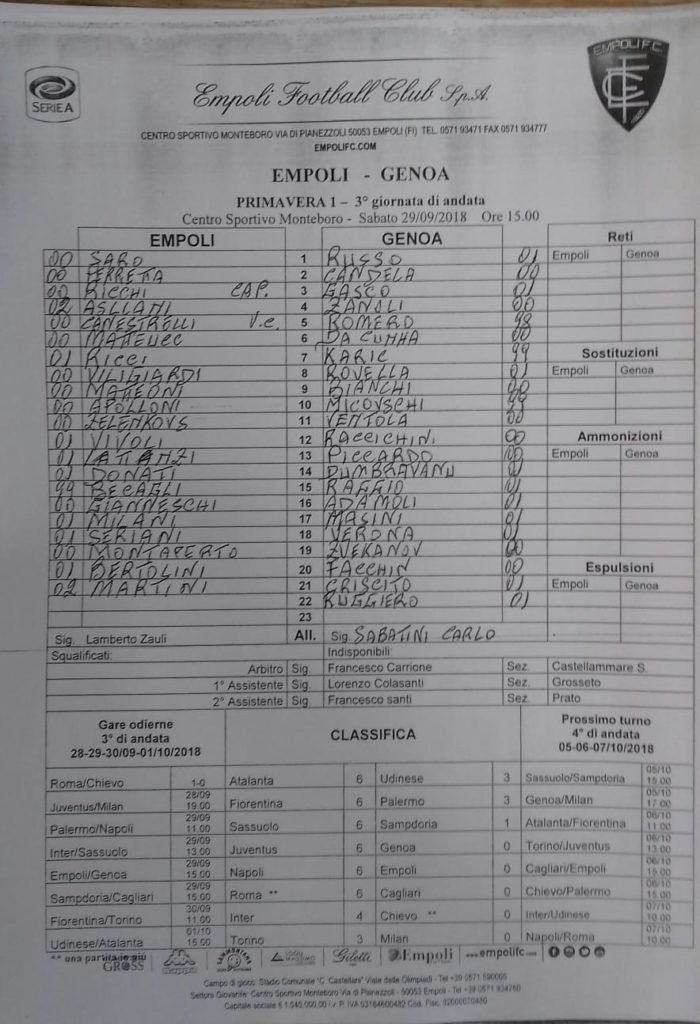 SERIE A
EMPOLI F.C.
1920
Empoli Football Club S.p.A.
CENTRO SPORTIVO MONTEBORO VIA DI PIANEZZOLI 50053 EMPOLI (FI) TEL. 0571 93471 FAX 0571 934777
EMPOLIFC.COM
EMPOLI - GENOA
PRIMAVERA 1 – 3° giornata di andata
Centro Sportivo Monteboro - Sabato 29/09/2018 Ore 15.00
EMPOLI GENOA Reti
00 SARO 1 RUSSO 01 Empoli Genoa
00 PERRETTA 2 CANDELA 00
00 RICCHI CAP. 3 GASCO 01
02 ASLLANI 4 ZANOLI 00
00 CANESTRELLI V.C. 5 ROMERO 98
00 MATEUCC 6 DA CUNHA 00
01 RICCI 7 KARIC 99 Sostituzioni
00 VILIGIARDI 8 ROVELLA 01 Empoli Genoa
00 MATEONI 9 BIANCHI 00
00 APOLLONI 10 MICOVSCHI 99
00 ZELENKOVS 11 VENTOLA 00
01 VIVOLI 12 RACCICHINI 00 Ammonizioni
01 13 PICCARDO 00 Empoli Genoa
01 DONATI 14 DUMBRAVANU 01
99 BECAGLI 15 RAGGIO 01
00 GIANNESCHI 16 ADAMOLI 01
01 MILANI 17 MASINI 01
01 SERIANI 18 VERONA 01
00 MONTAPERTO 19 ZVEKANOV 00
01 BERTOLINI 20 FACCHIN 00 Espulsioni
02 MARTINI 21 CRISCITO 01 Empoli Genoa
22 RUGGIERO 01
23
Sig. Lamberto Zauli All. Sig. SABATINI CARLO
Squalificati: Indisponibili:
Arbitro Sig. Francesco Carrione Sez. Castellammare S.
1° Assistente Sig. Lorenzo Colasanti Sez. Grosseto
2° Assistente Sig. Francesco santi Sez. Prato
Gare odierne
3° di andata
28-29-30/09-01/10/2018
CLASSIFICA
Prossimo turno
4° di andata
05-06-07/10/2018
Roma/Chievo 1-0 Atalanta 6 Udinese 3 Sassuolo/Sampdoria 05/10 15.00
Juventus/Milan 28/09 19.00 Fiorentina 6 Palermo 3 Genoa/Milan 05/10 17.00
Palermo/Napoli 29/09 11.00 Sassuolo 6 Sampdoria 1 Atalanta/Fiorentina 06/10 11.00
Inter/Sassuolo 29/09 13.00 Juventus 6 Genoa 0 Torino/Juventus 06/10 13.00
Empoli/Genoa 29/09 15.00 Napoli 6 Empoli 0 Cagliari/Empoli 06/10 15.00
Sampdoria/Cagliari 29/09 15.00 Roma ** 6 Cagliari 0 Chievo/Palermo 06/10 15.00
Fiorentina/Torino 30/09 11.00 Inter 4 Chievo ** 0 Inter/Udinese 07/10 10.00
Udinese/Atalanta 01/10 15.00 Torino 3 Milan 0 Napoli/Roma 07/10 10.00
** una partita in più
GROSS SAMMONTANA Giletti Empoli www.empolifc.com
Campo di gioco: Stadio Comunale "C. Castellani" Viale delle Olimpiadi - Tel +39 0571 590005
Settore Giovanile: Centro Sportivo Monteboro Via di Pianezzoli - 50053 Empoli - Tel +39 0571 934760
Capitale sociale € 1.040.000,00 i.v. P. IVA 03164600482 Cod. Fisc. 82000070480